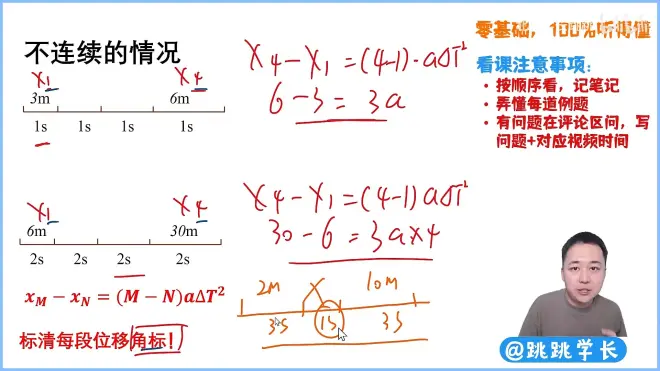 零基础，100%听得懂
不连续的情况
看课注意事项：
按顺序看，记笔记
弄懂每道例题
有问题在评论区问，写
问题+对应视频时间
X1 X4
3m 6m
1s 1s 1s 1s
X4-X1=(4-1)·aΔT²
6-3=3a
X1 X4
6m 30m
2s 2s 2s 2s
X4-X1=(4-1)aΔT²
30-6=3a×4
x_M-x_N=(M-N)aΔT²
标清每段位移角标!
2M X 10M
3S 1S 3S
@跳跳学长